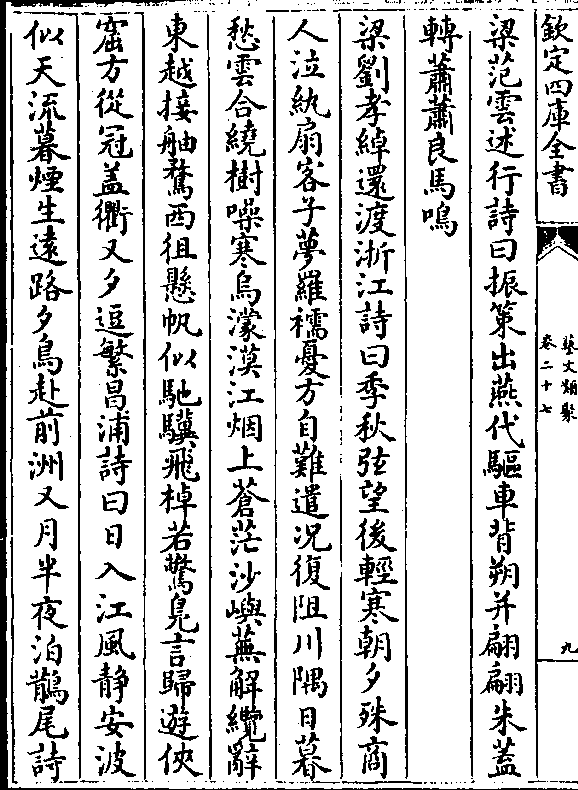 欽定四庫全書
藝文類聚
卷二十七
九
梁范雲述行詩曰振策出燕代驅車背朔并翩翩朱蓋
轉蕭蕭良馬鳴
梁劉孝綽還渡浙江詩曰季秋弦望後輕寒朝夕殊商
人泣紈扇客子夢羅襦憂方自難遣況復阻川隅日暮
愁雲合繞樹噪寒烏濛漠江烟上蒼茫沙嶼蕪解纜辭
東越接舳鶩西徂懸帆似馳驥飛棹若驚鳧言歸遊俠
窟方從冠盖衢又夕逗繁昌浦詩曰日入江風静安波
似天流暮煙生遠路夕鳥赴前洲又月半夜泊鵲尾詩